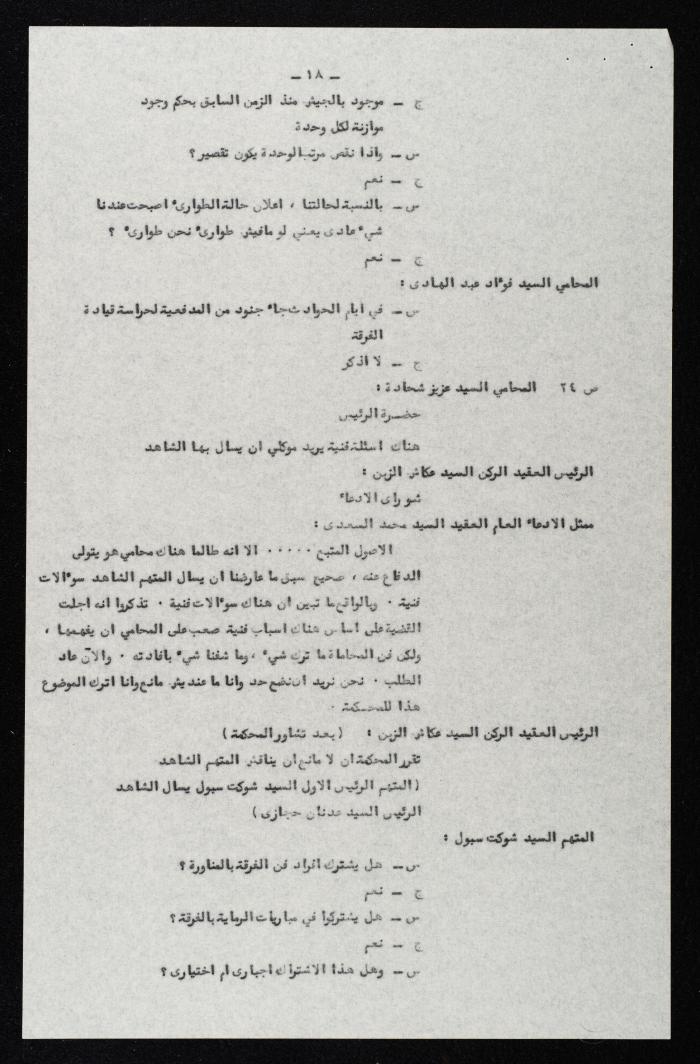 – ١٨ –
ج – موجود بالجيش منذ الزمن السابق بحكم وجود
موازنة لكل وحدة
س – واذا نقص مرتب الوحدة يكون تقصير ؟
ج – نعم
س – بالنسبة لحالتنا ، اعلان حالة الطوارىء اصبحت عندنا
شيء عادى يعني لو مافيش طوارىء نحن طوارىء ؟
ج – نعم
المحامي السيد فوءاد عبد الهادى :
س – في ايام الحوادث جاء جنود من المدفعية لحراسة قيادة
الفرقة
ج – لا اذكر
ص ٢٤ المحامي السيد عزيز شحادة :
حضرة الرئيس
هناك اسئلة فنية يريد موكلي ان يسال بها الشاهد
الرئيس العقيد الركن السيد عكاش الزبن :
شو راى الادعاء
ممثل الادعاء العام العقيد السيد محمد السعدى :
الاصول المتبع ٠٠٠٠٠ الا انه طالما هناك محامي هو يتولى
الدفاع عنه ، صحيح سبق ما عارضنا ان يسال المتهم الشاهد سوءالات
فنية ٠ وبالواقع ما تبين ان هناك سوءالات فنية ٠ تذكروا انه اجلت
القضية على اساس هناك اسباب فنية صعب على المحامي ان يفهمها ،
ولكن فن المحاماة ما ترك شيء ، وما شفنا شيء بافادته ٠ والآن عاد
الطلب ٠ نحن نريد ان نضع حد وانا ما عنديش مانع وانا اترك الموضوع
هذا للمحكمة ٠
الرئيس العقيد الركن السيد عكاش الزبن : ( بعد تشاور المحكمة )
تقرر المحكمة ان لا مانع ان يناقش المتهم الشاهد
( المتهم الرئيس الاول السيد شوكت سبول يسال الشاهد
الرئيس السيد عدنان حجازى )
المتهم السيد شوكت سبول :
س – هل يشترك افراد فن الفرقة بالمناورة ؟
ج – نعم
س – هل يشتركوا في مباريات الرماية بالفرقة ؟
ج – نعم
س – وهل هذا الاشتراك اجبارى ام اختيارى ؟